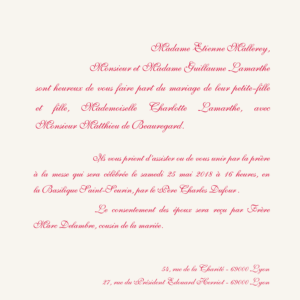 Madame Etienne Mallerey,
Monsieur et Madame Guillaume Lamarthe
sont heureux de vous faire part du mariage de leur petite-fille
et fille, Mademoiselle Charlotte Lamarthe, avec
Monsieur Matthieu de Beauregard.
Ils vous prient d'assister ou de vous unir par la prière
à la messe qui sera célébrée le samedi 25 mai 2018 à 16 heures, en
la Basilique Saint-Seurin, par le Père Charles Dufour.
Le consentement des époux sera reçu par Frère
Marc Delambre, cousin de la mariée.
54, rue de la Charité - 69000 Lyon
27, rue du Président Edouard Herriot - 69000 Lyon